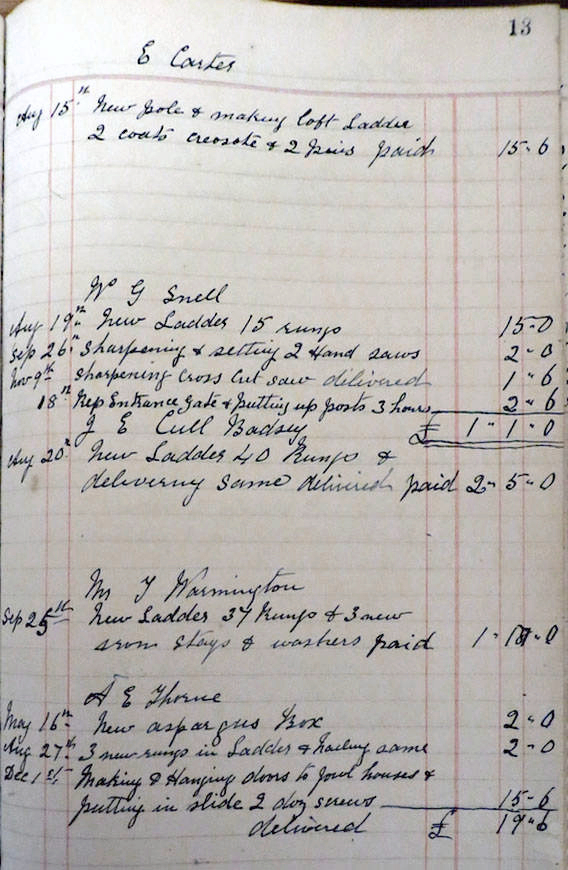 13
E Carter
Aug 15th New pole & making Loft Ladder
2 coats creosote & 2 paid 15"6
W G Snell
Aug 19th New Ladder 15 rungs 15"0
Sep 26th Sharpening & setting 2 Hand saws 2"0
Nov 9th Sharpening Cross Cut saw delivered 1"6
18th Rep Entrance Gate & putting up posts 3 hours 2"6
J E Cull Badsey £ 1"1"0
Aug 20th New Ladder 40 Rungs &
delivering same delivered paid 2"5"0
Mr T Warmington
Sep 25th New Ladder 37 Rungs & 3 new
iron stays & washers paid 1" "0
A E Thorne
May 16th New aspargus Box 2"0
Aug 27th 3 new rungs in Ladder & nailing same 2"0
Dec 1st Making & Hanging doors to fowl houses &
putting in slide 2 doz screws 15"6
delivered £ 19"6